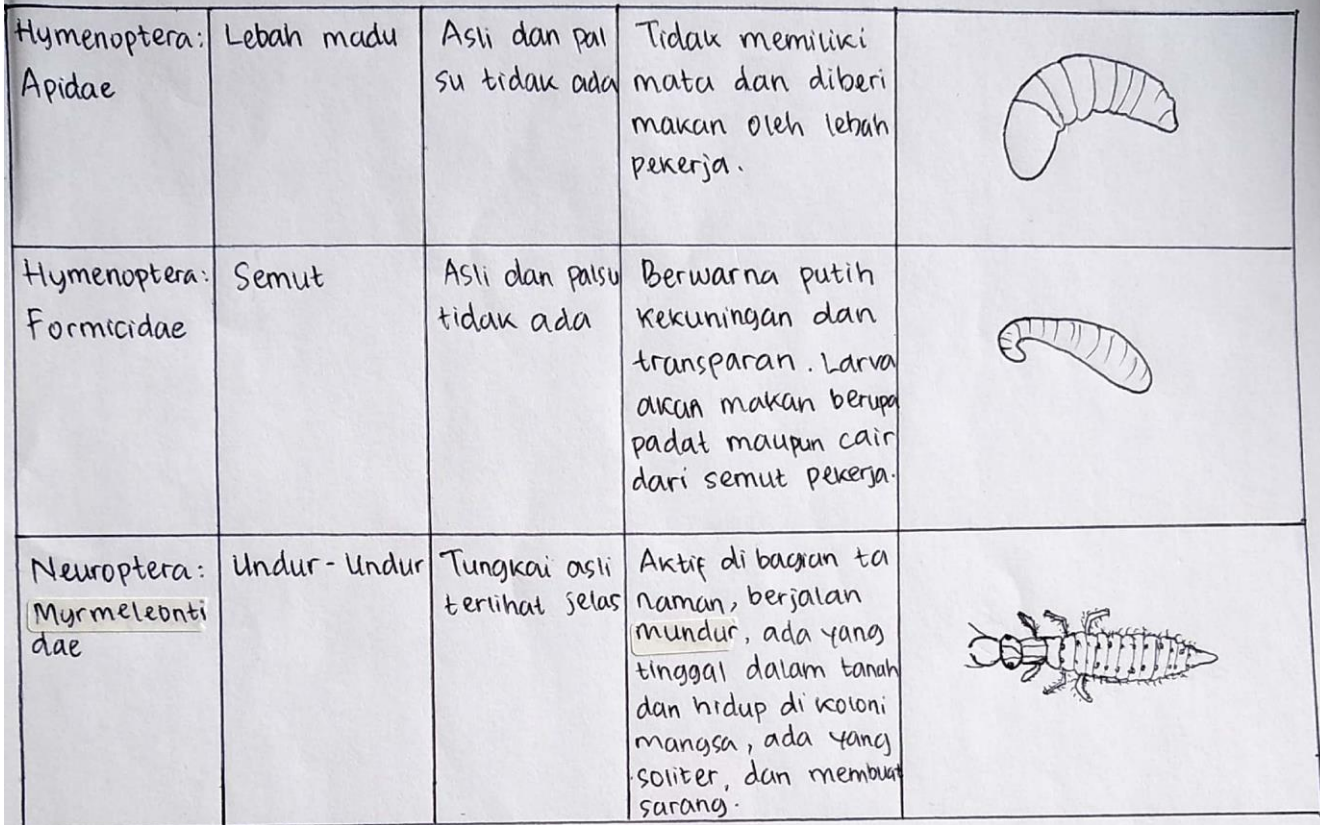 Hymenoptera:
Apidae
Lebah madu
Asli dan pal
su tidak ada
Tidak memiliki
mata dan diberi
makan oleh lebah
pekerja.
Hymenoptera:
Formicidae
Semut
Asli dan palsu
tidak ada
Berwarna putih
kekuningan dan
transparan. Larva
akan makan berupa
padat maupun cair
dari semut pekerja.
Neuroptera:
Myrmeleonti
dae
Undur-Undur
Tungkai asli
terlihat jelas
Aktif di bagian ta
naman, berjalan
mundur, ada yang
tinggal dalam tanah
dan hidup di koloni
mangsa, ada yang
soliter, dan membuat
sarang.